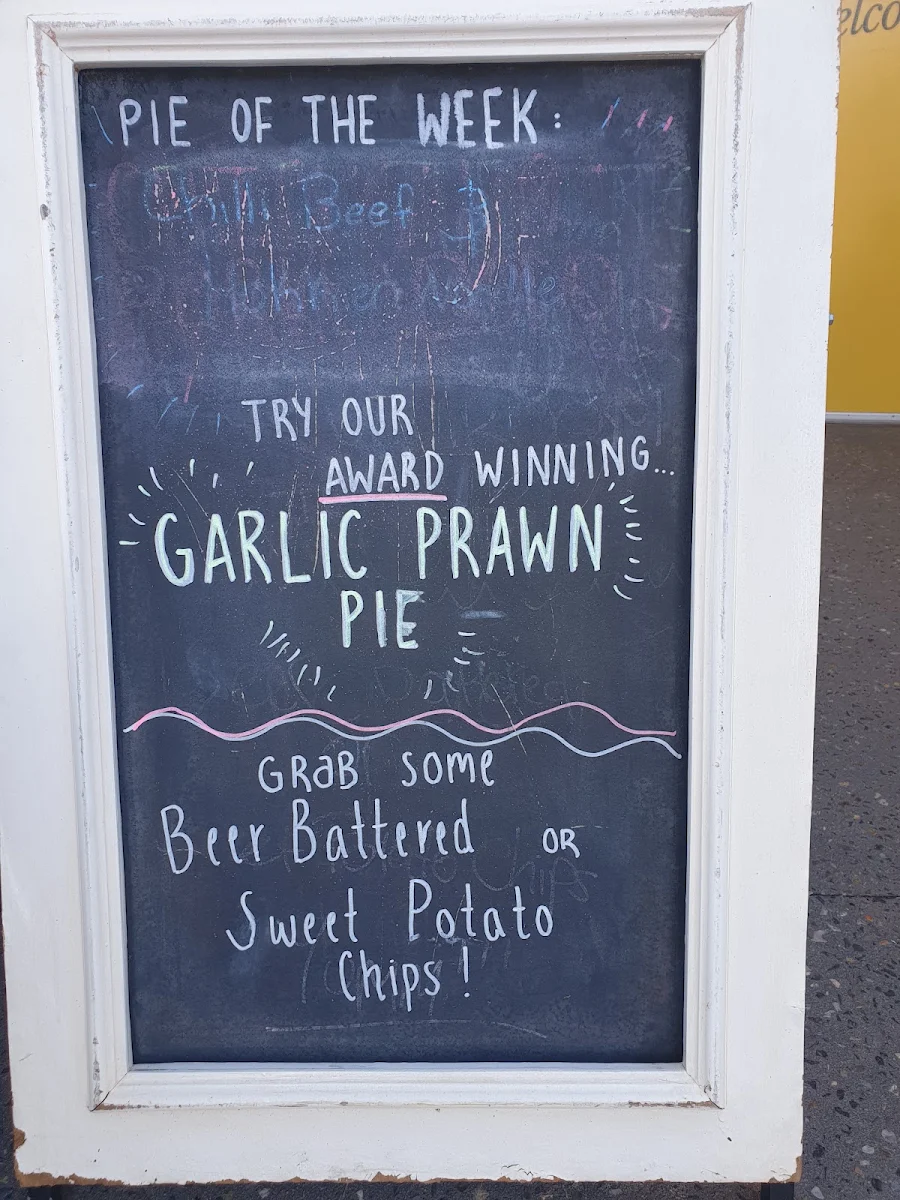 elco
PIE OF THE WEEK:
Chilli Beef &
TRY OUR
AWARD WINNING...
GARLIC PRAWN
PIE
GRaB some
Beer Battered OR
Sweet Potato
Chips!